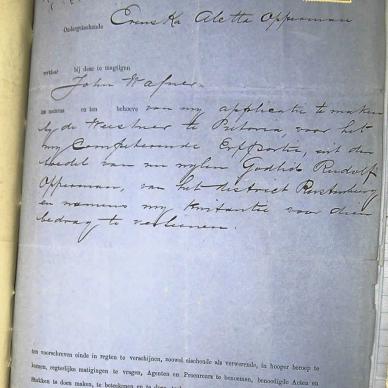 Ondergeteekende Erenska Aletta Opperman
verklaar bij deze te magtigen
John Wafner.
naam en ten behoeve van my applicatie te maken
by de Weesheer te Pretoria, voor het
my Competeerende Erfportie, uit den
boedel van nu wylen Godlieb Rudolf
Opperman, van het district Rustenburg
en namens my kwitantie voor dien
bedrag te verleenen.
ten voorschreven einde in regten te verschijnen, zoowel eischende als verwerende, in hooger beroep te
komen, regterlijke matigingen te vragen, Agenten en Procureurs te benoemen, benoodigde Acten en
Stukken te doen maken, te beteekenen en te doen